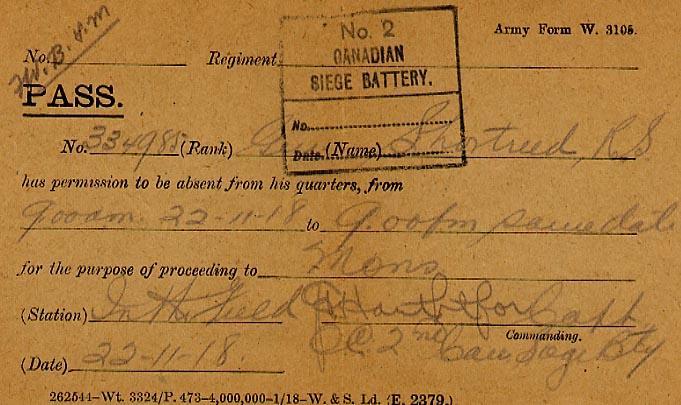 Army Form W. 3105.
No. 2
CANADIAN
SIEGE BATTERY.
No. Regiment
PASS.
No.
Date.
No. 334985 (Rank) Gnr (Name) Shortreed, R S
has permission to be absent from his quarters, from
9.00am. 22-11-18 to 9.00pm same date
for the purpose of proceeding to Mons
(Station) In the Field for Capt
O.C. 2nd Can Siege Bty Commanding.
(Date) 22-11-18
262544–Wt. 3324/P. 473–4,000,000–1/18–W. & S. Ld. (E. 2379.)